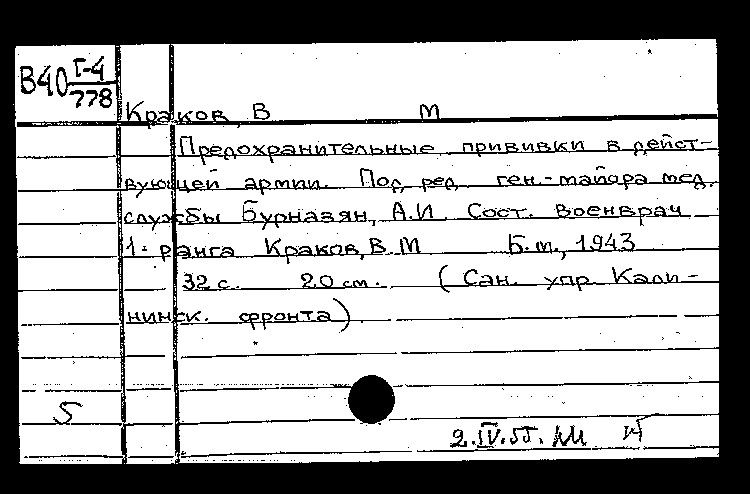 В40 Г-4
778
Краков, В М
Предохранительные прививки в дейст-
вующей армии. Под ред. ген.-майора мед.
службы Бурназян, А.И. Сост. военврач
1- ранга Краков, В.М Б.м., 1943
32 с. 20 см. (Сан. упр. Кали-
нинск. фронта)
5
2.IV.55.